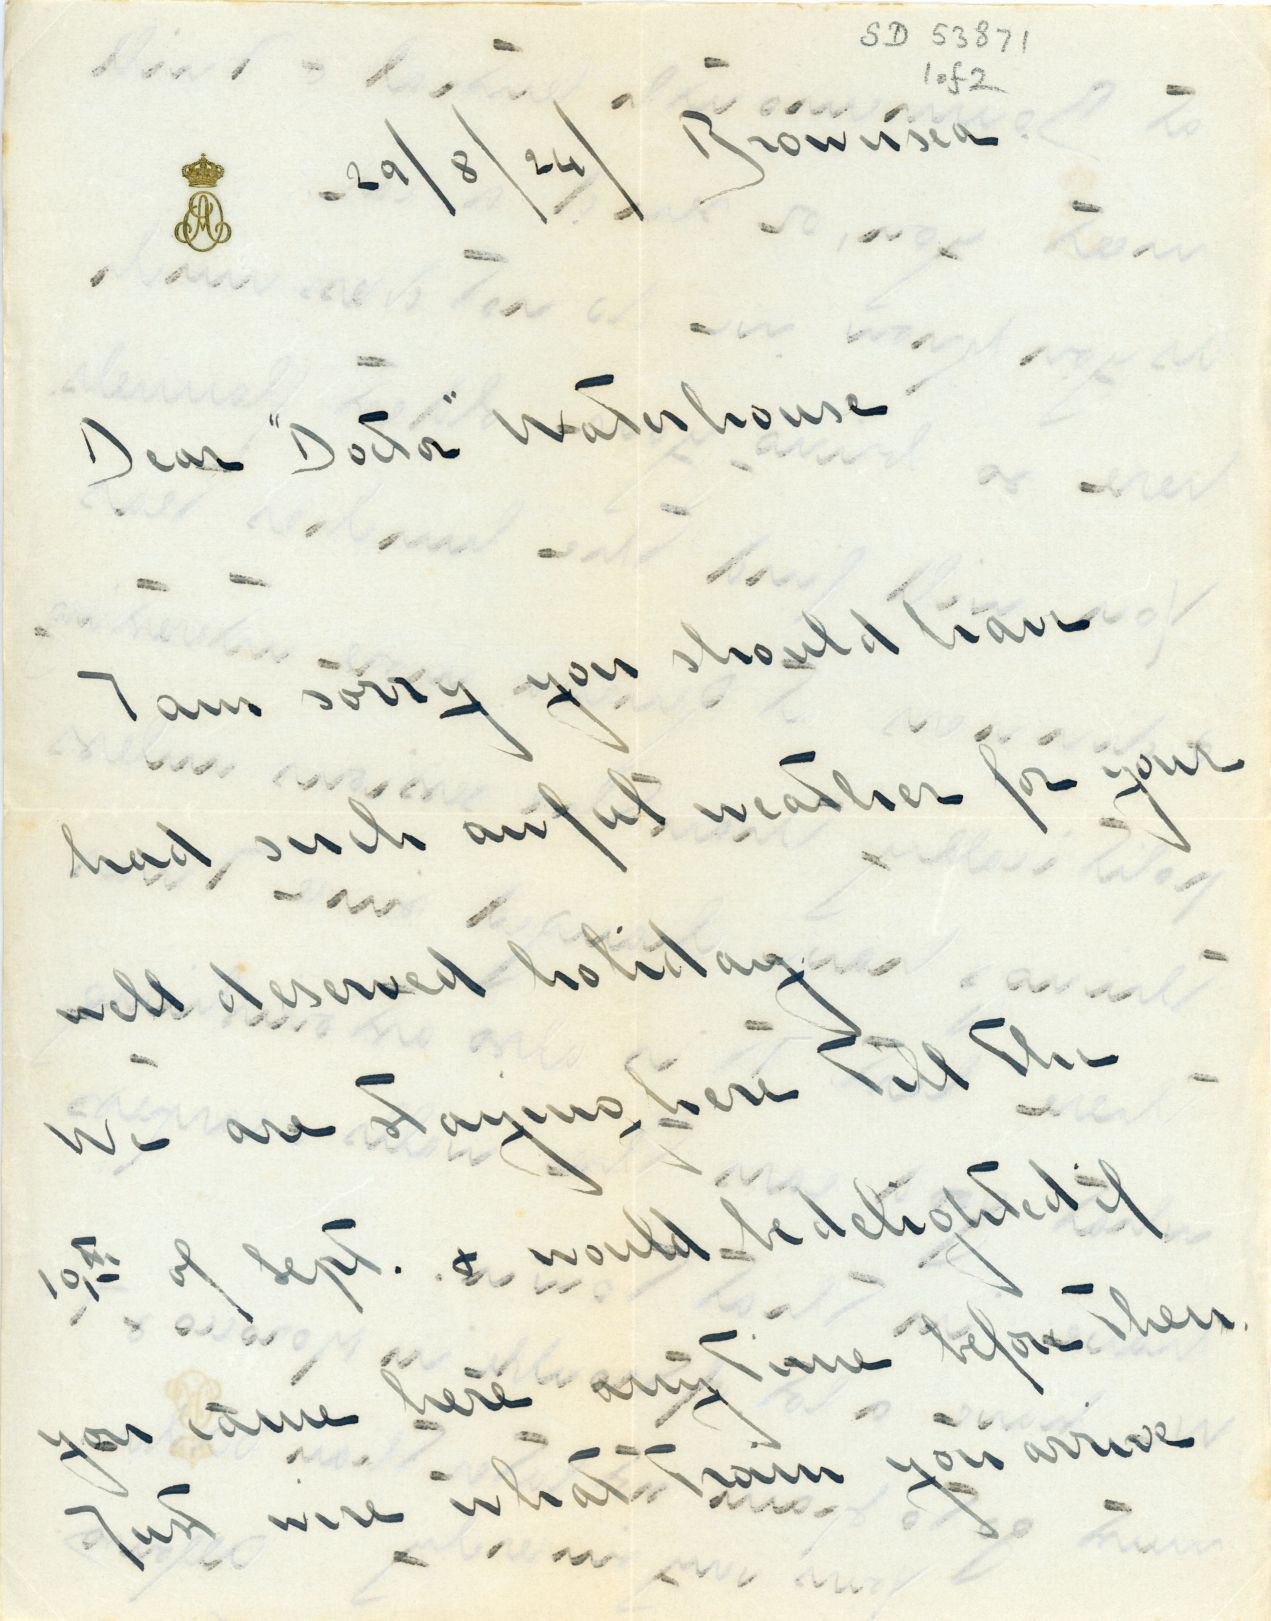 SD 53871
1 of 2
29/8/24/ Brownsea
Dear "Doctor" Waterhouse
I am sorry you should have
had such awful weather for your
well deserved holiday.
We are staying here till the
10th of Sept. & would be delighted if
you came here any time before then.
Just wire what train you arrive